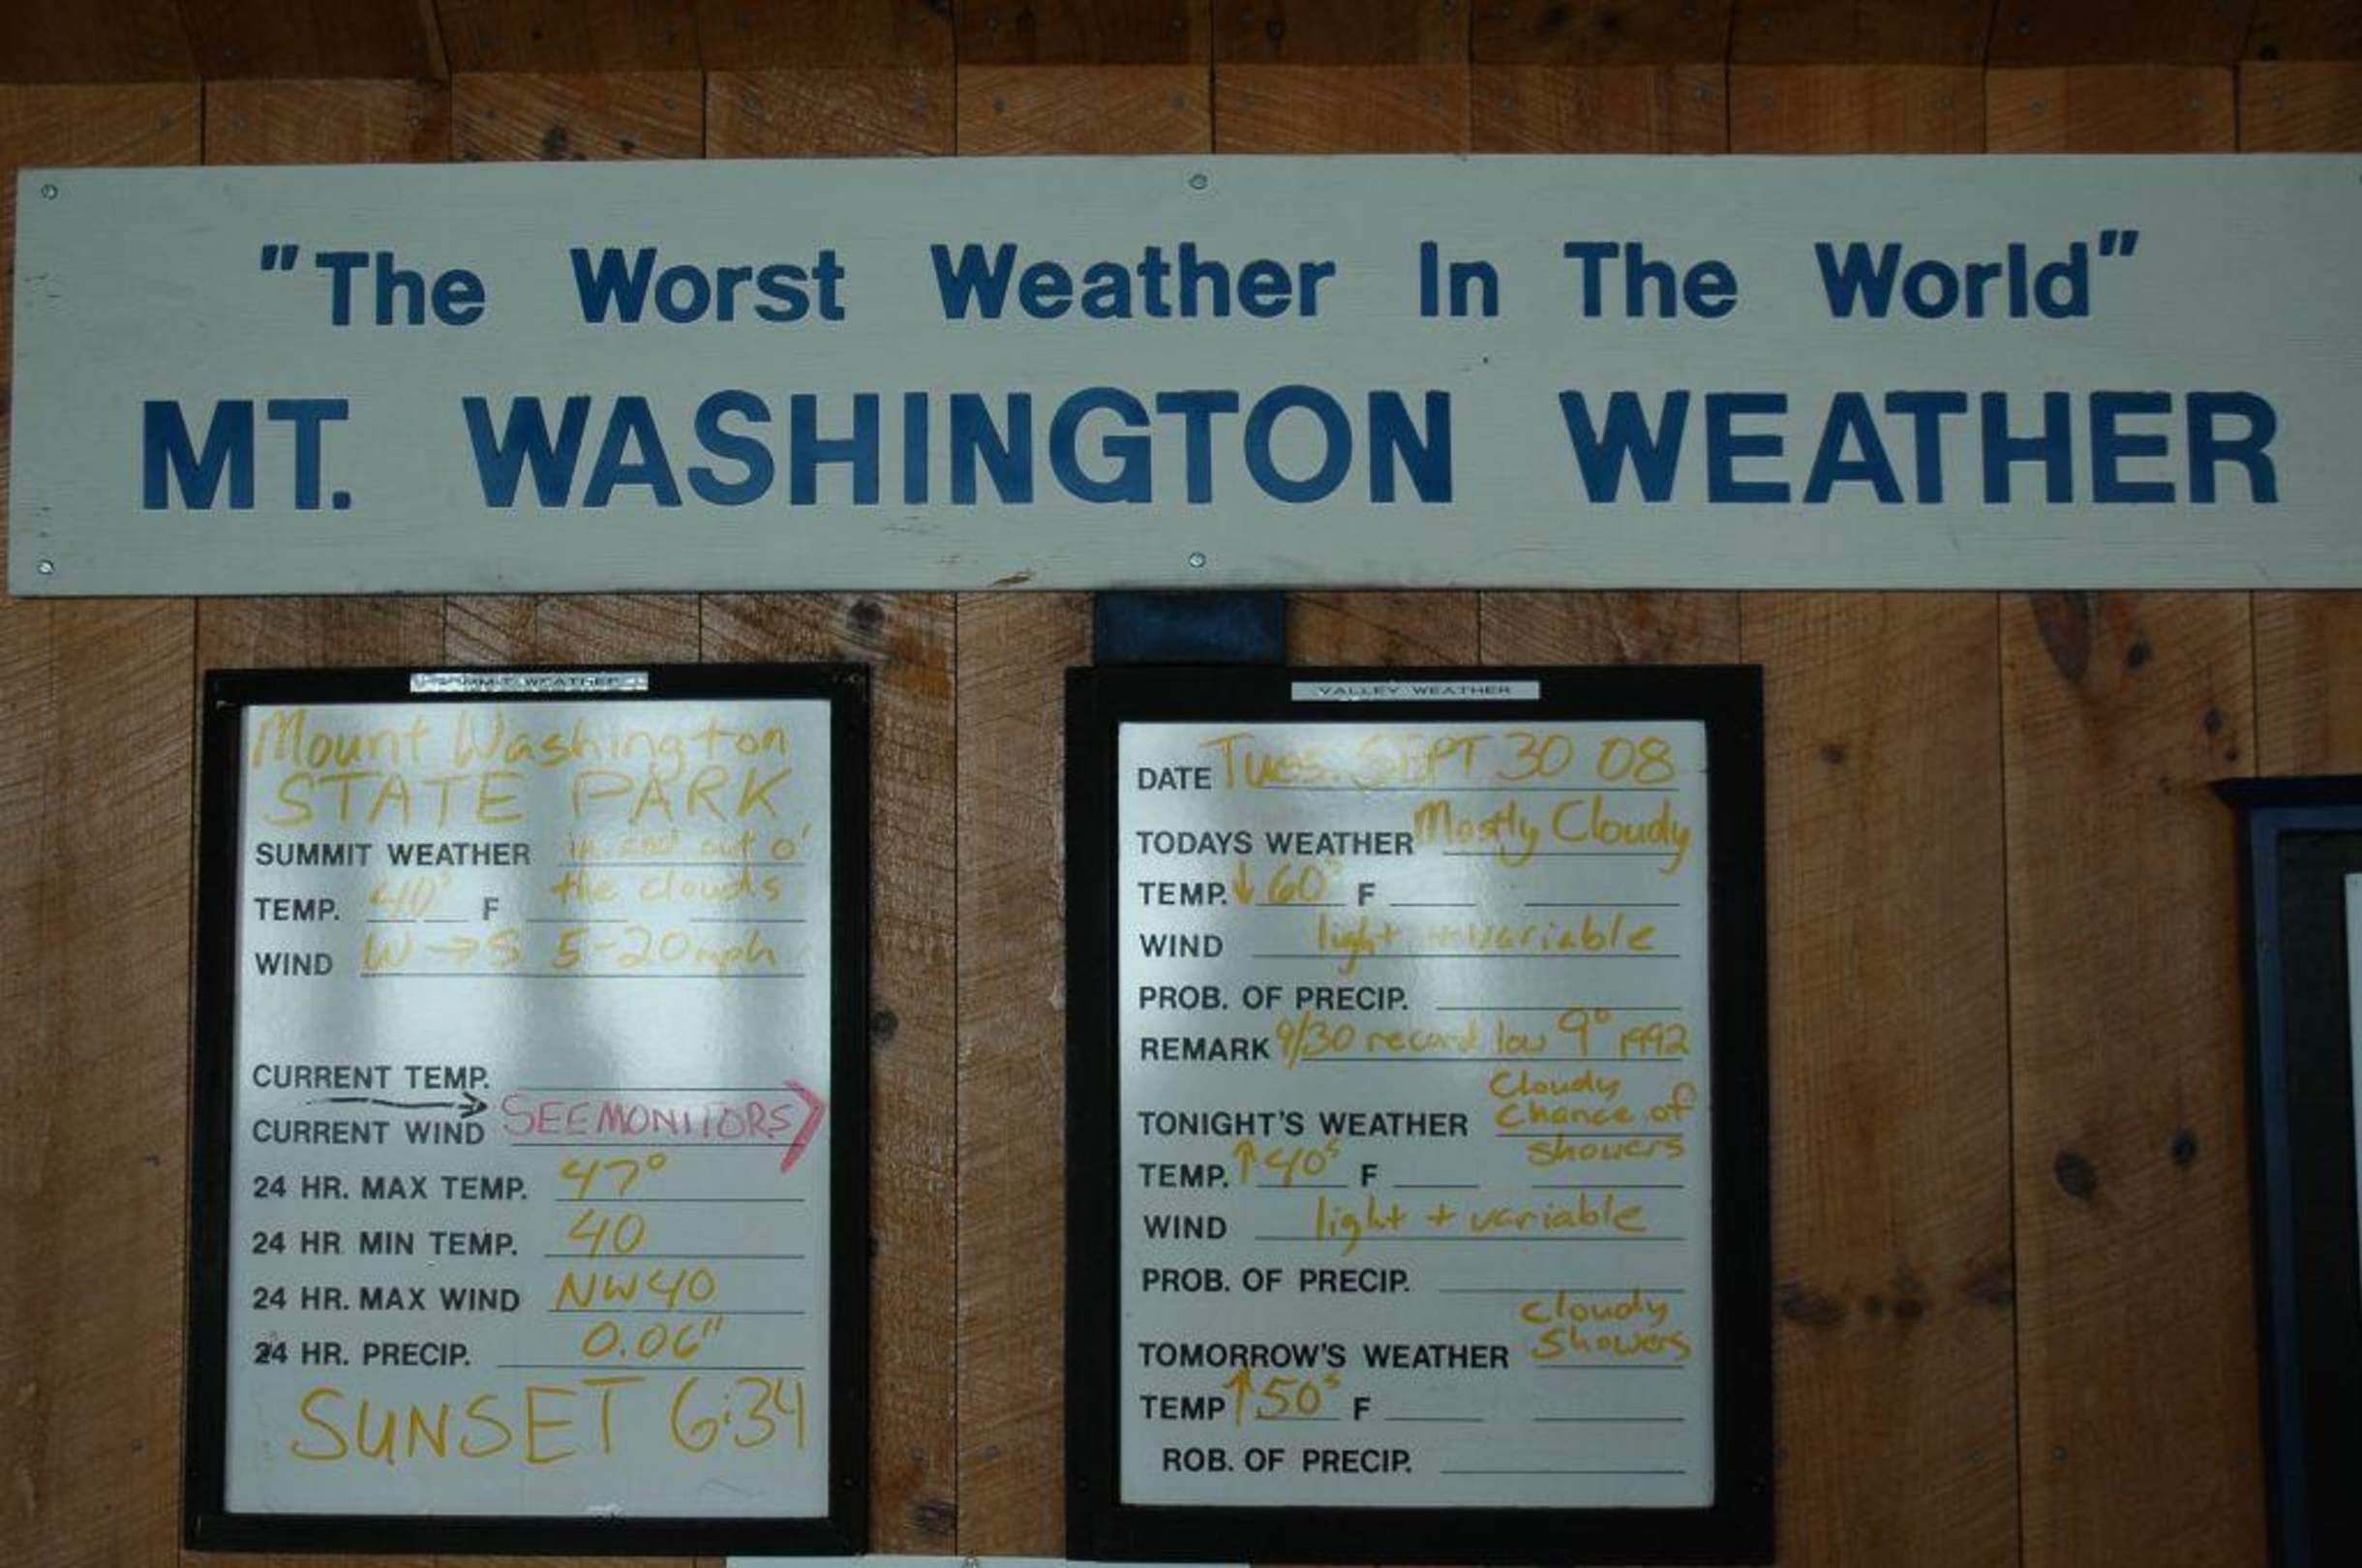 "The Worst Weather In The World"
MT. WASHINGTON WEATHER
SUMMIT WEATHER
Mount Washington
STATE PARK
SUMMIT WEATHER in and out o'
the clouds
TEMP. 40° F
WIND W → S 5-20 mph
CURRENT TEMP.
CURRENT WIND SEE MONITORS
24 HR. MAX TEMP. 47°
24 HR MIN TEMP. 40
24 HR. MAX WIND NW 40
24 HR. PRECIP. 0.06"
SUNSET 6:34
VALLEY WEATHER
DATE Tues. SEPT 30 08
TODAYS WEATHER Mostly Cloudy
TEMP. ↓ 60s F
WIND light + variable
PROB. OF PRECIP.
REMARK 9/30 record low 9° 1992
Cloudy
TONIGHT'S WEATHER Chance of
showers
TEMP. ↑ 40s F
WIND light + variable
PROB. OF PRECIP.
Cloudy
TOMORROW'S WEATHER Showers
TEMP ↑ 50s F
ROB. OF PRECIP.